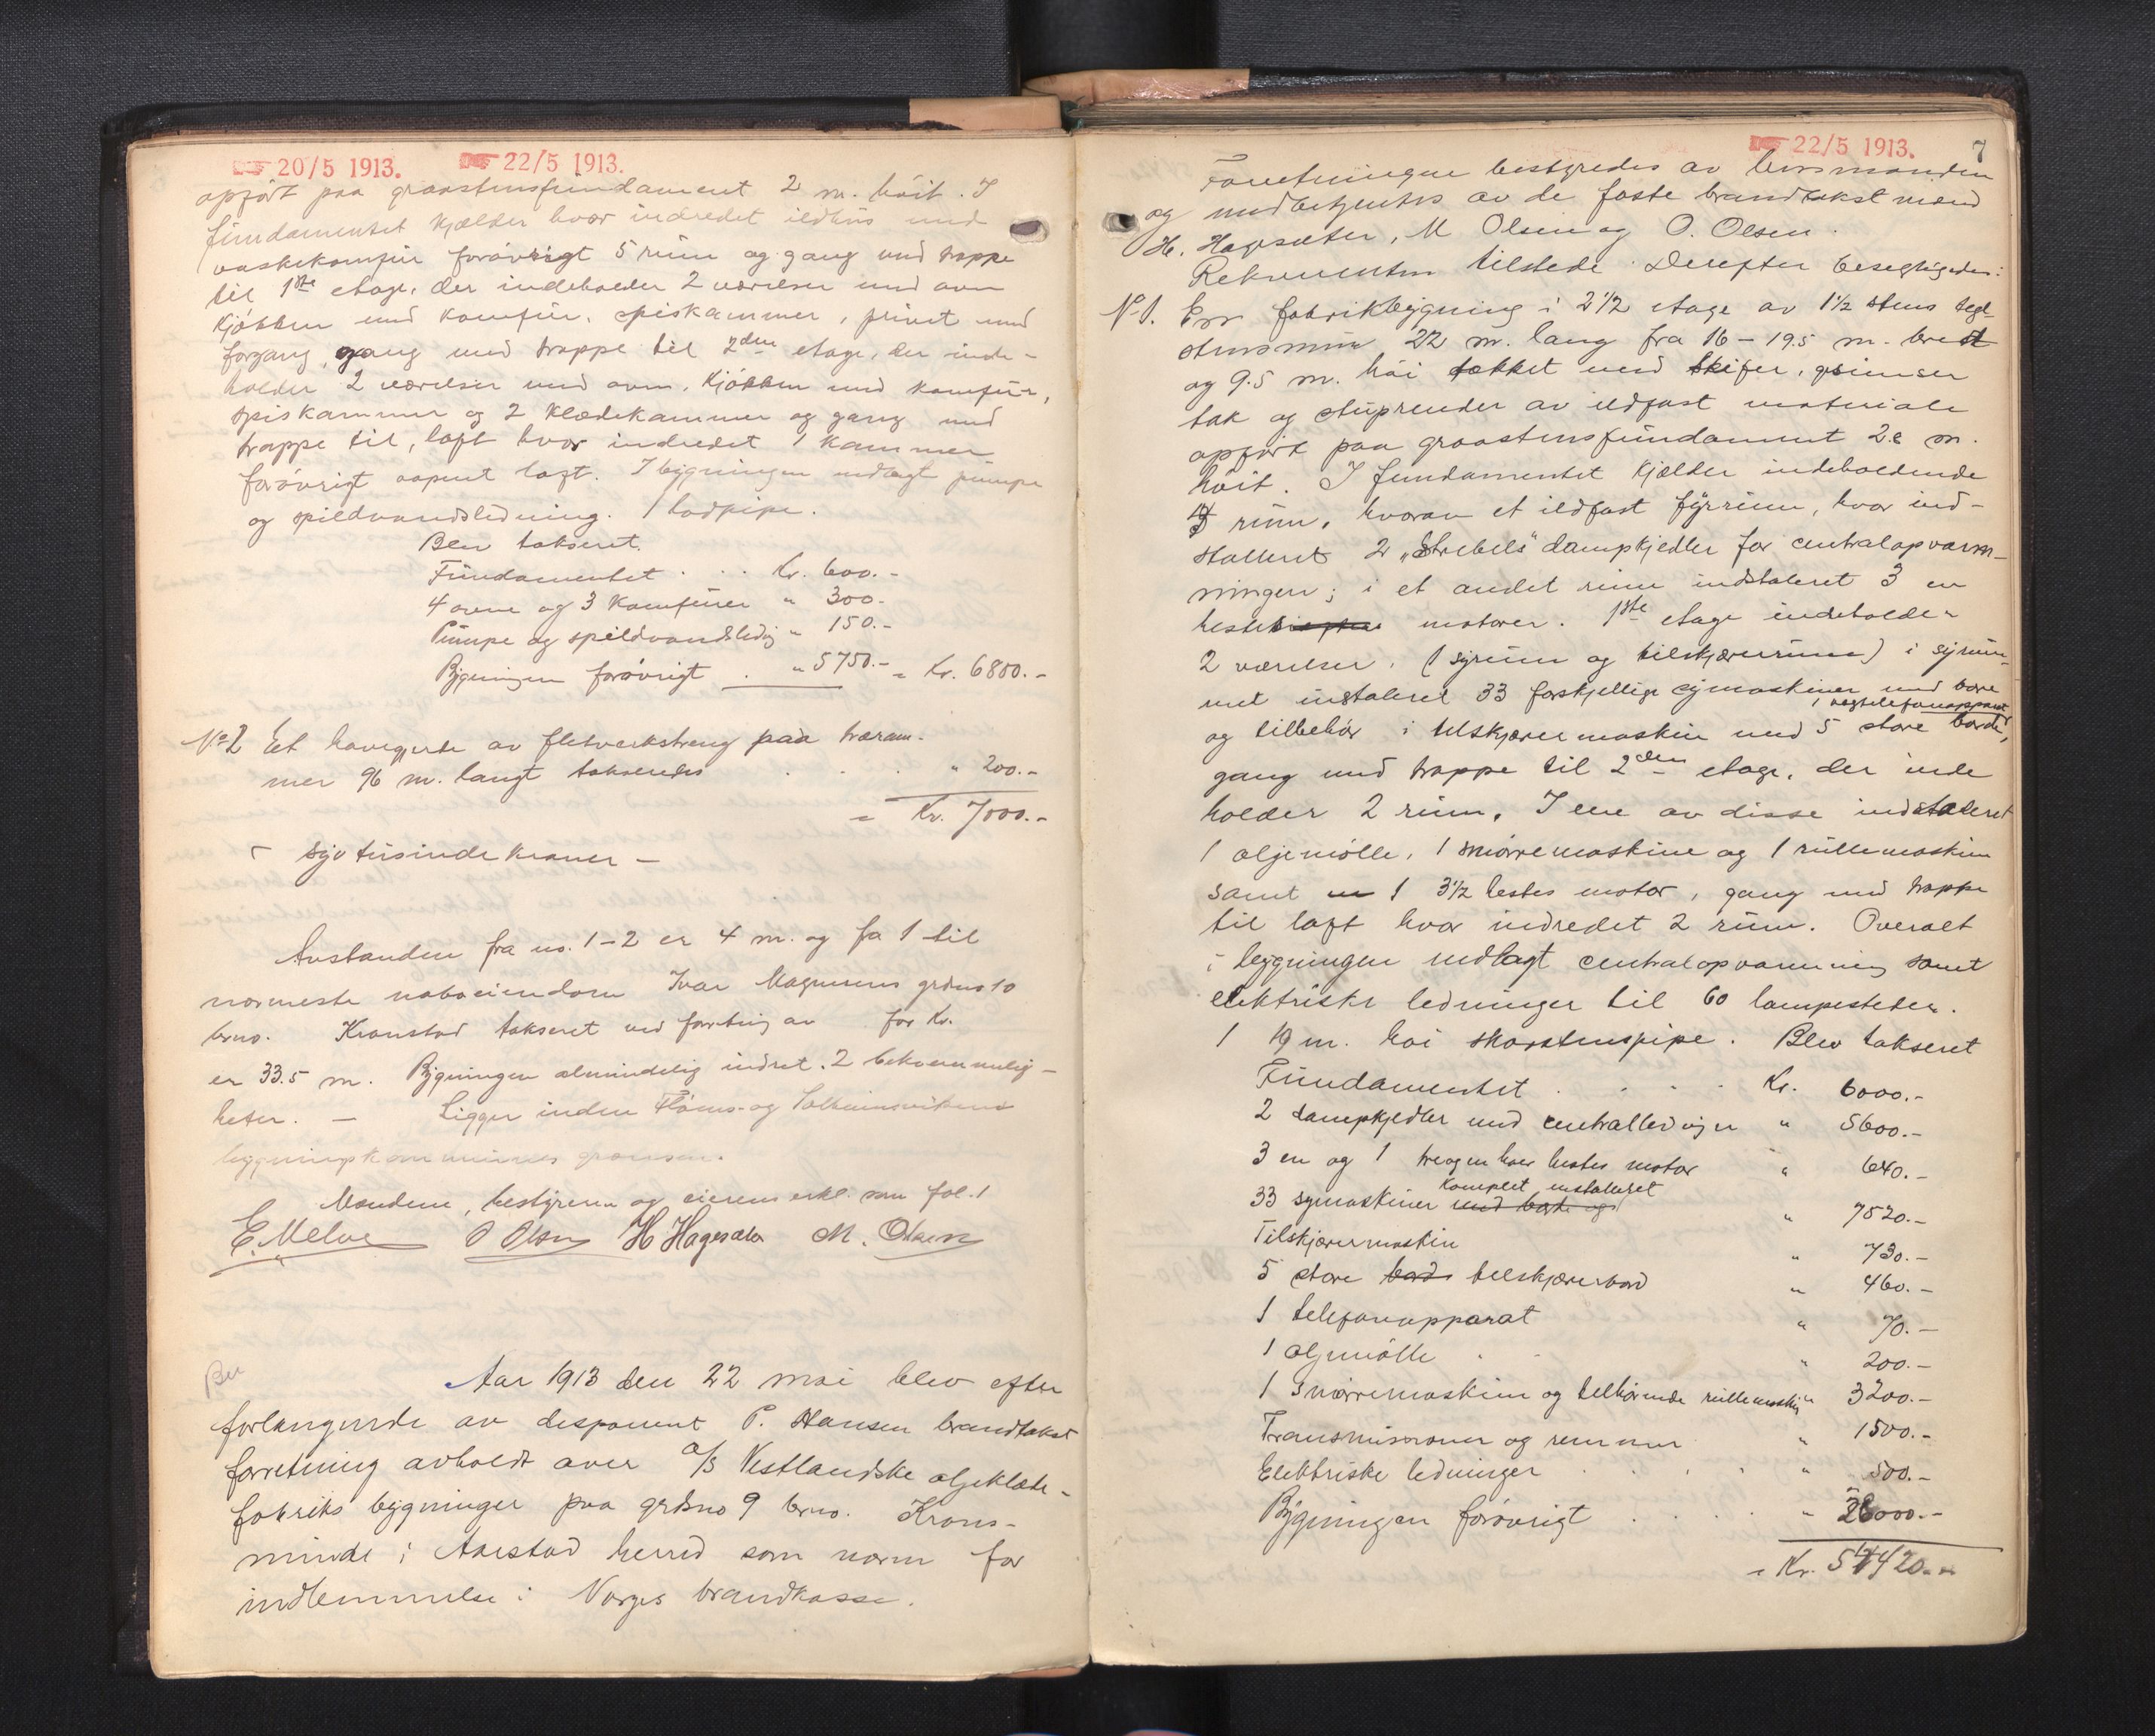 20/5 1913. 22/5 1913.
opført paa graastensfundament 2 m. høit. I
fundamentet kjælder hvor indredet ildhus med
vaskekomfur forøvrigt 5 rum og gang med trappe
til 1ste etage, der indeholder 2 værelser med ovn
kjøkken med komfur, spiskammer, privet med
forgang, gang med trappe til 2den etage, der inde-
holder 2 værelser med ovn, kjøkken med komfur,
spiskammer og 2 klædekammer og gang med
trappe til, loft hvor indredet 1 kammer
forøvrigt aapent loft. I bygningen indlagt pumpe
og spildvandsledning. 1 lodpipe.
Blev takseret.
Fundamentet . . . Kr. 600.-
4 ovne og 3 komfurer " 300.-
Pumpe og spildvandsledig " 150.-
Bygningen forøvrigt . " 5750.- = Kr. 6800.-
No 2 Et havegjerde av fletverkstreng paa træram-
mer 96 m. langt takseredes . . . " 200.-
= Kr. 7000.-
syv tusinde kroner -
Avstanden fra no. 1-2 er 4 m. og fra 1 til
nærmeste naboeiendom Ivar Magnesens grdno 10
brno. Kronstad takseret ved forretnig av for Kr.
er 33.5 m. Bygningen almindelig indret. 2 bekvemmelig-
heter. - Ligger inden Fløens- og Solheimsvikens
bygningskommunes grænser.
Mændene, bestyreren og eierens erkl. som fol. 1
E. Melve O Olsen H Hagesæter M. Olsen
Aar 1913 den 22 mai blev efter
forlangende av disponent P. Hansen brandtakst
forretning avholdt over a/s Vestlandske oljeklæde-
fabriks bygninger paa grdsno 9 brno. Krons-
minde i Aarstad herred som norm for
indlemmelse i Norges brandkasse.
22/5 1913. 7
Forretningen bestyredes av lensmanden
og medbetjentes av de faste brandtakst mænd
H. Hagesæter, M Olsen og O. Olsen.
Rekvirenten tilstede. Derefter besegtigedes:
No 1. En fabrikbygning i 2 1/2 etage av 1 1/2 stens tegl-
stensmur 22 m. lang fra 16 - 19.5 m. bred
og 9.5 m. høi tækket med skifer, gesimser
tak og stuprender av ildfast materiale
opført paa graastensfundament 2.8 m.
høit. I fundamentet kjælder indeholdende
4 rum, hvorav et ildfast fyrrum, hvor ind-
stalleret 2 "Strebels" dampkjedler for centralopvarm-
ningen; i et andet rum indstaleret 3 en
hestes motorer. 1ste etage indeholder
2 værelser, (1 syrum og tilskjærerrum) i syrum-
met instaleret 33 forskjellige symaskiner med bord
1 vægtelefonapparat
og tilbehør 1 tilskjærermaskin med 5 store borde,
gang med trappe til 2den etage, der inde
holder 2 rum. I ene av disse indstaleret
1 oljemølle, 1 smørremaskine og 1 rullemaskin
samt 1 3 1/2 hestes motor, gang med trappe
til loft hvor indredet 2 rum. Overalt
i bygningen indlagt centralopvarmning samt
elektriske ledninger til 60 lampesteder.
1 19 m. høi skorstenspipe. Blev takseret
Fundamentet . . . . Kr. 6000.-
2 dampkjedler med centralledniger " 5600.-
3 en og 1 tre og en halv hestes motor " 640.-
komplet installeret
33 symaskiner med bord og " 7520.-
Tilskjærermaskin " 730.-
5 store bord tilskjærerbord " 460.-
1 telefonapparat " 70.-
1 oljemølle . . " 200.-
1 smørremaskin og tilhørende rullemaskin " 3200.-
Transmisioner og remmer " 1500.-
Elektriske ledninger . . . . " 500.-
Bygningen forøvrigt . . . . " 28000.-
= Kr. 54420.-